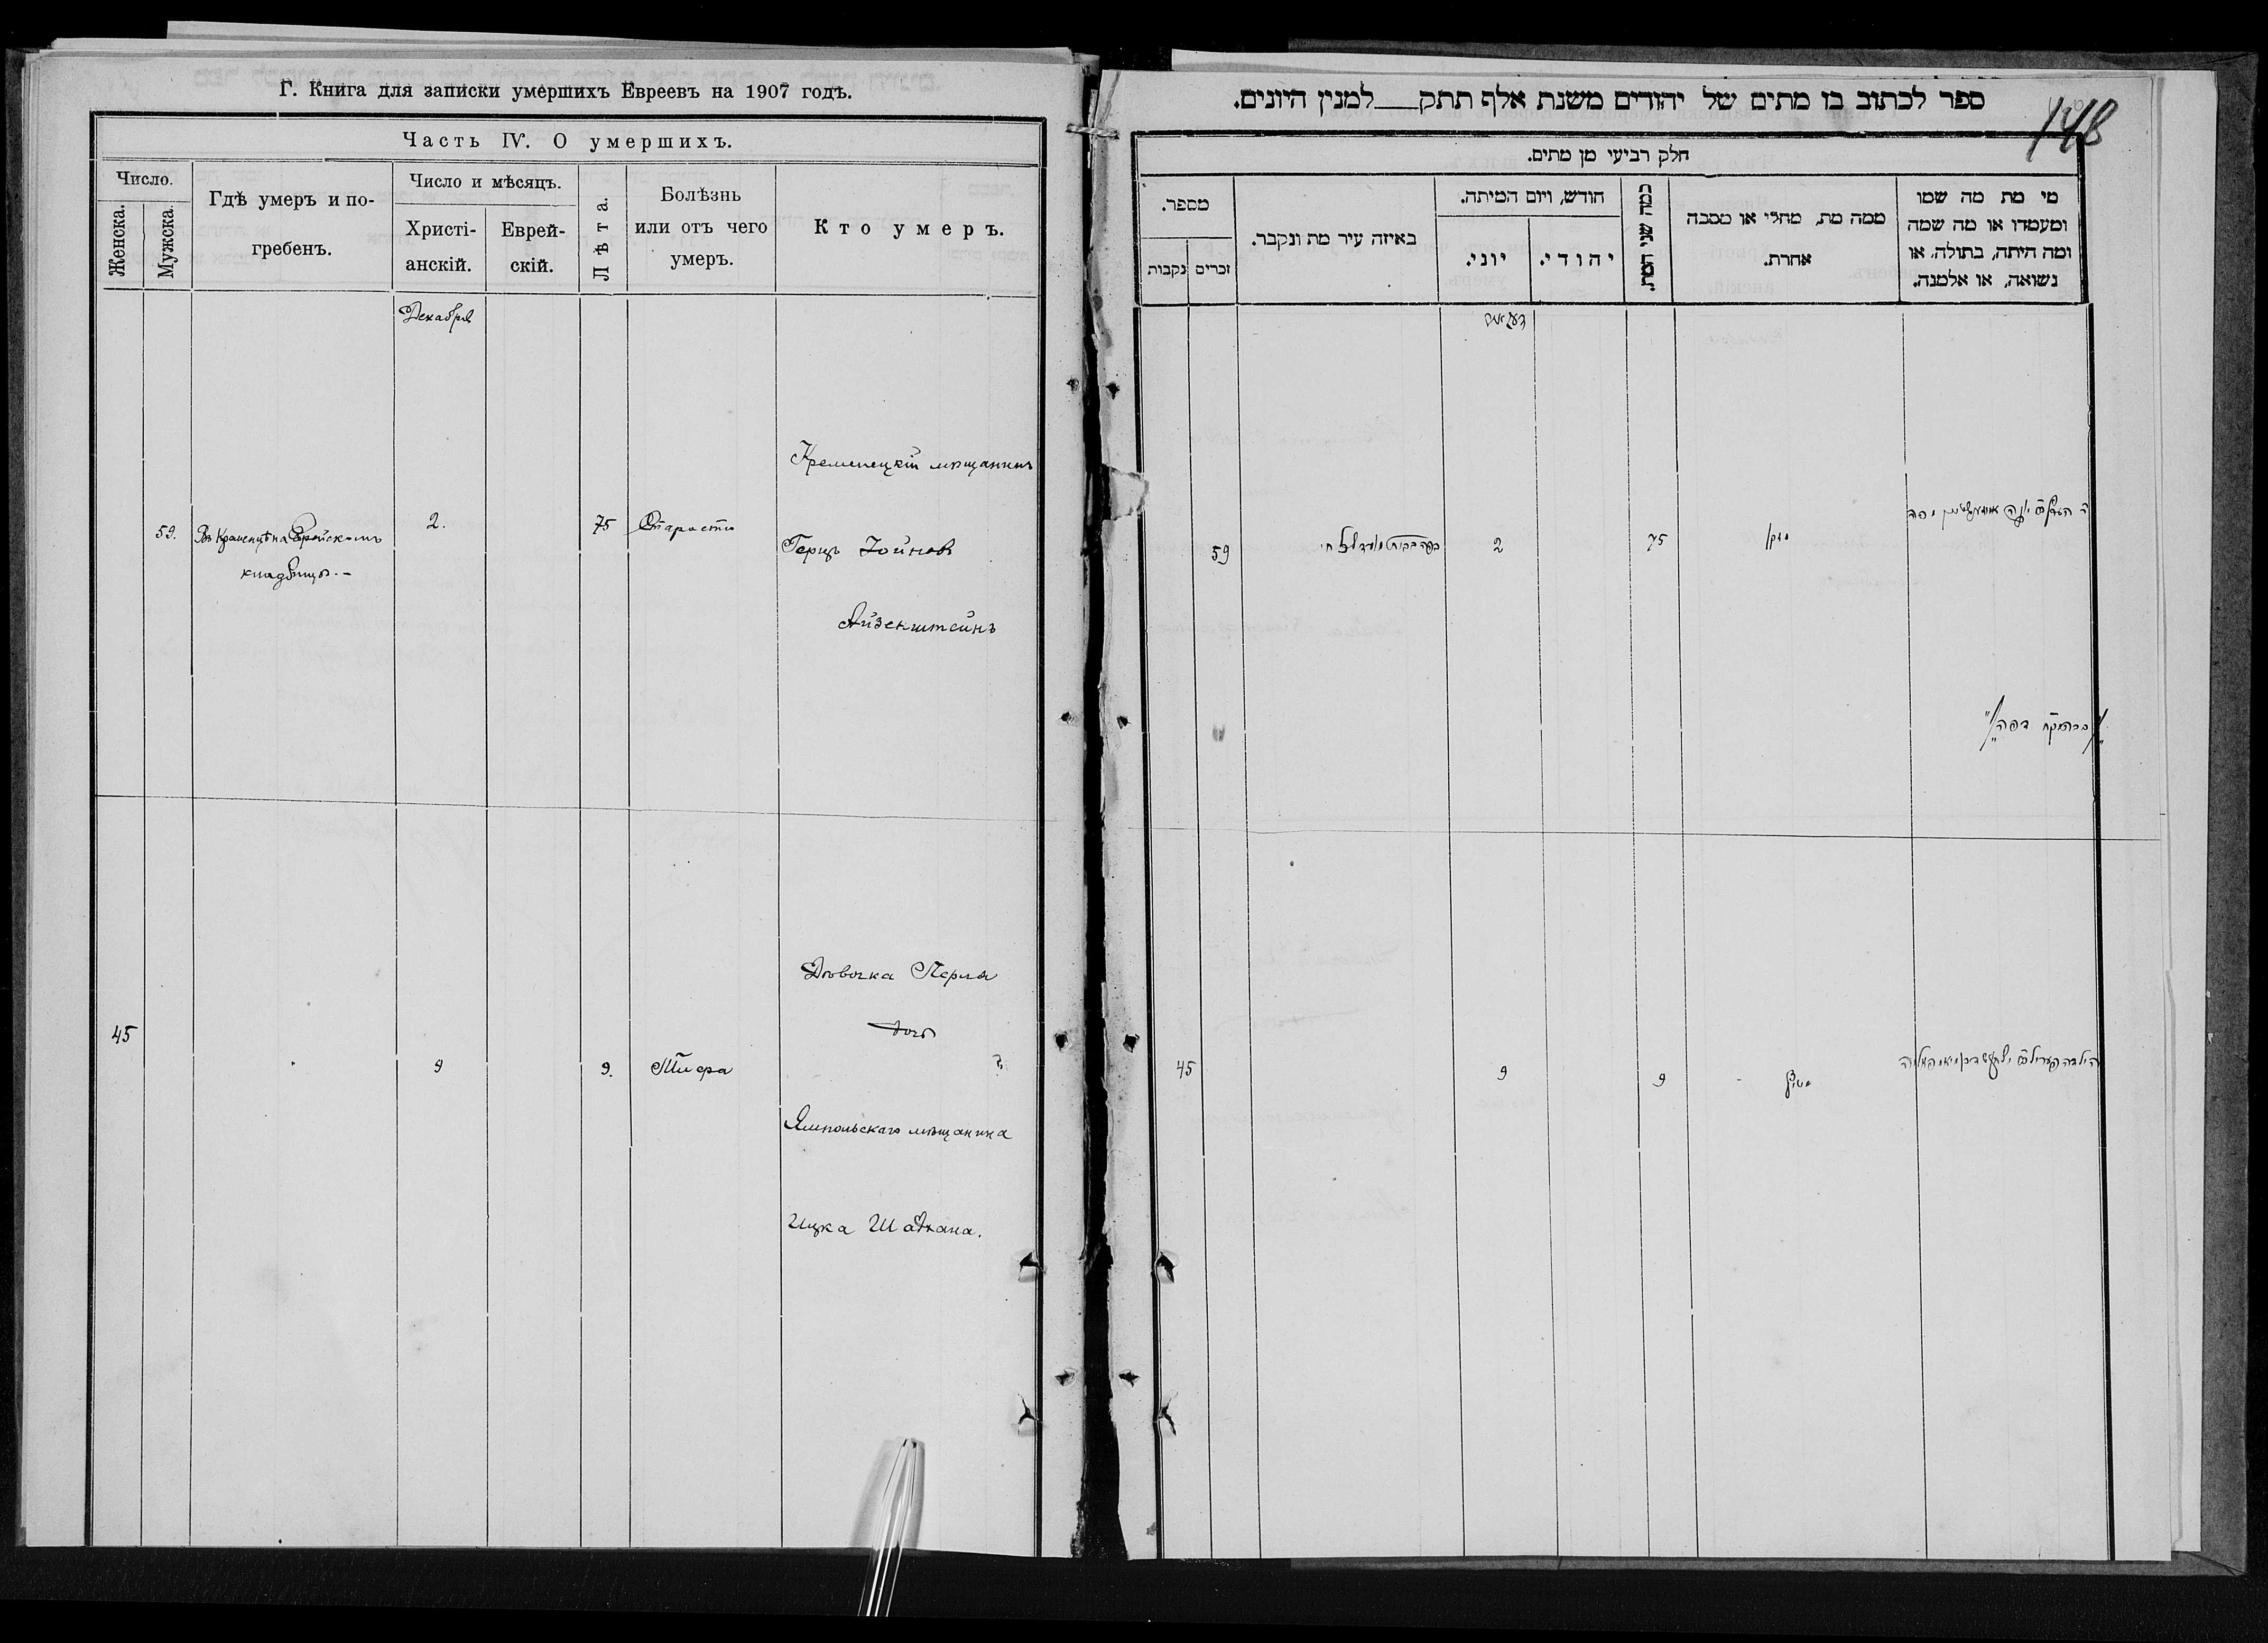 Г. Книга для записки умершихъ Евреевъ на 1907 годъ.
Часть IV. О умершихъ.
Число.
Женска.
Мужска.
Гдѣ умеръ и по-
гребенъ.
Число и мѣсяцъ.
Христі-
анскій.
Еврей-
скій.
Лѣта.
Болѣзнь
или отъ чего
умеръ.
Кто умеръ.
Декабрь
59.
Въ Кременцѣ на Еврейскомъ
кладбищѣ.-
2.
75
Старости
Кременецкій мѣщанинъ
Герцъ Іойновъ
Айзенштейнъ
45
9
9.
Тифа
Дѣвочка Перля
дочь
Ямпольскаго мѣщанина
Ицка Шадхана.
ספר לכתוב בו מתים של יהודים משנת אלף תתק למנין היונים.
148
חלק רביעי מן מתים.
מספר.
נקבות
זכרים
באיזה עיר מת ונקבר.
חודש, ויום המיתה.
יוני.
יהודי.
כמה שני המת.
ממה מת, מחלי או מסבה
אחרת.
מי מת מה שמו
ומעמדו או מה שמה
ומה היתה, בתולה, או
נשואה, או אלמנה.
59
2
75
זקן
45
9
9